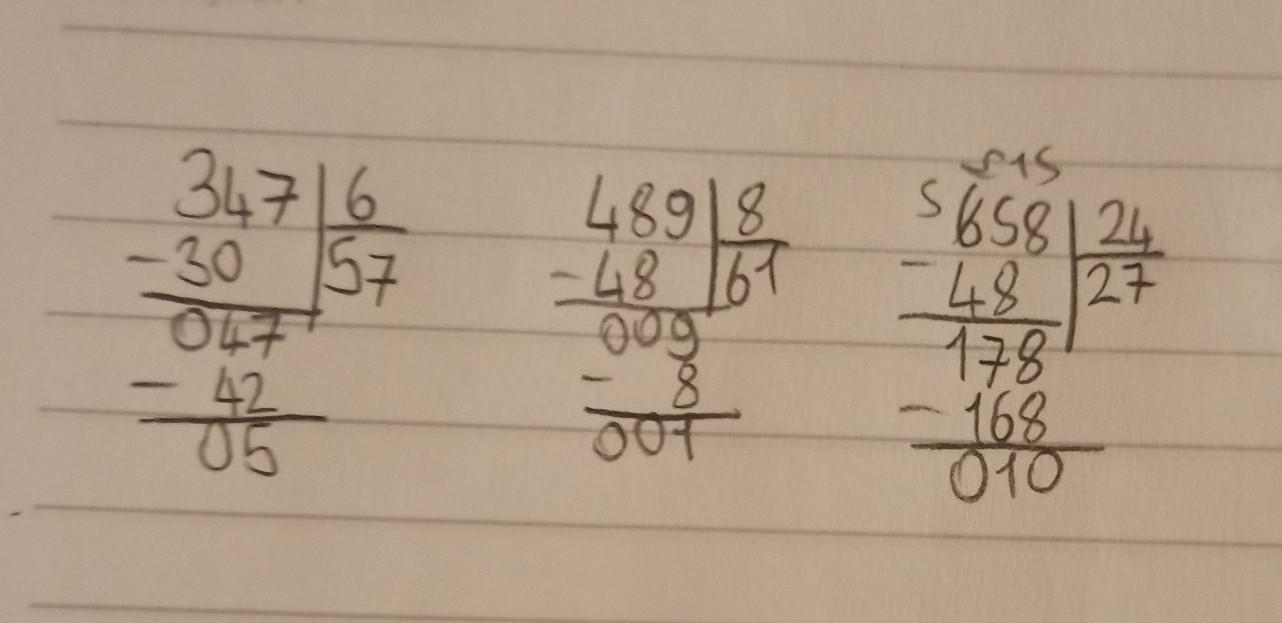 347 | 6
-30 | 57
047
- 42
05
489 | 8
-48 | 61
009
- 8
001
515
5 658 | 24
- 48 | 27
178
-168
010